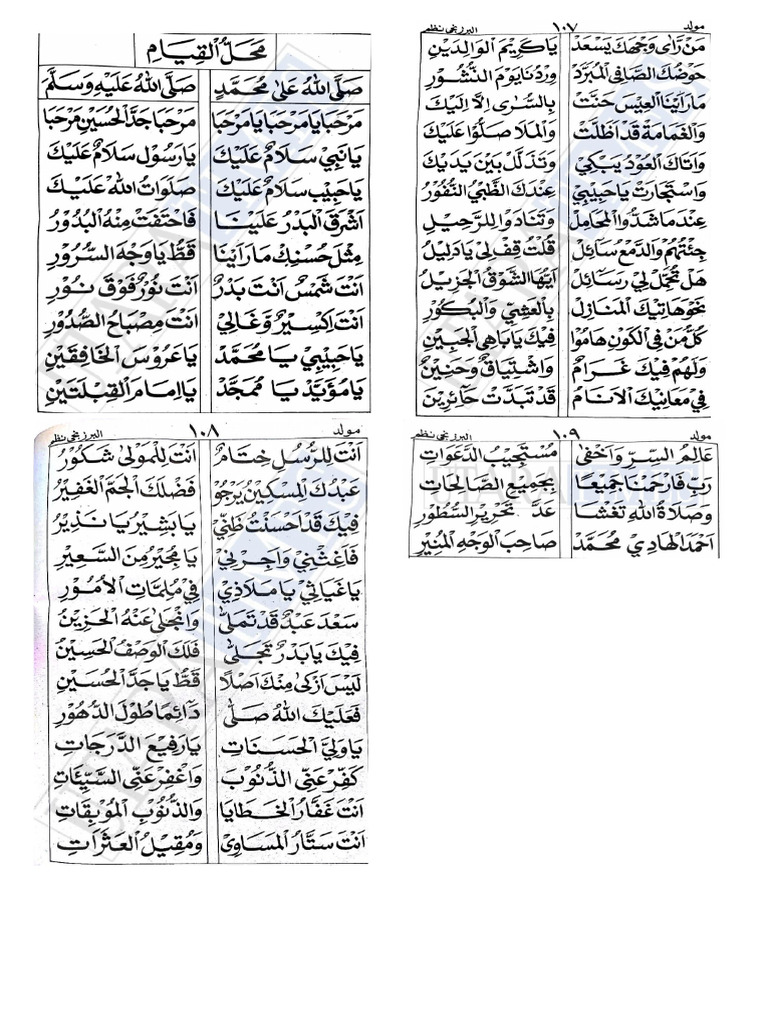 مَحَلُّ الْقِيَامِ
صَلَّى اللهُ عَلٰى مُحَمَّدٍ صَلَّى اللهُ عَلَيْهِ وَسَلَّمَ
مَرْحَبًا يَا مَرْحَبًا يَا مَرْحَبًا مَرْحَبًا جَدَّ الْحُسَيْنِ مَرْحَبًا
يَا نَبِيْ سَلَامٌ عَلَيْكَ يَا رَسُوْلْ سَلَامٌ عَلَيْكَ
يَا حَبِيْبْ سَلَامٌ عَلَيْكَ صَلَوَاتُ اللهْ عَلَيْكَ
اَشْرَقَ الْبَدْرُ عَلَيْنَا فَاخْتَفَتْ مِنْهُ الْبُدُوْرُ
مِثْلَ حُسْنِكْ مَا رَاَيْنَا قَطُّ يَا وَجْهَ السُّرُوْرِ
اَنْتَ شَمْسٌ اَنْتَ بَدْرٌ اَنْتَ نُوْرٌ فَوْقَ نُوْرٍ
اَنْتَ اِكْسِيْرٌ وَغَالِيْ اَنْتَ مِصْبَاحُ الصُّدُوْرِ
يَا حَبِيْبِيْ يَا مُحَمَّدْ يَا عَرُوْسَ الْخَافِقَيْنِ
يَا مُؤَيَّدْ يَا مُمَجَّدْ يَا اِمَامَ الْقِبْلَتَيْنِ
مولد ١٠٧ البرزنجي نظم
مَنْ رَّاٰى وَجْهَكَ يَسْعَدْ يَا كَرِيْمَ الْوَالِدَيْنِ
حَوْضُكَ الصَّافِى الْمُبَرَّدْ وِرْدُنَا يَوْمَ النُّشُوْرِ
مَا رَاَيْنَا الْعِيْسَ حَنَّتْ بِالسُّرٰى اِلَّا اِلَيْكَ
وَالْغَمَامَةْ قَدْ اَظَلَّتْ وَالْمَلَا صَلُّوْا عَلَيْكَ
وَاَتَاكَ الْعُوْدُ يَبْكِيْ وَتَذَلَّلْ بَيْنَ يَدَيْكَ
وَاسْتَجَارَتْ يَا حَبِيْبِيْ عِنْدَكَ الظَّبْيُ النُّفُوْرُ
عِنْدَمَا شَدُّوا الْمَحَامِلْ وَتَنَادَوْا لِلرَّحِيْلِ
جِئْتُهُمْ وَالدَّمْعُ سَائِلْ قُلْتُ قِفْ لِيْ يَا دَلِيْلُ
هَلْ تَحَمَّلْ لِيْ رَسَائِلْ اَيُّهَا الشَّوْقُ الْجَزِيْلُ
نَحْوَ هَاتِيْكَ الْمَنَازِلْ بِالْعَشِيِّ وَالْبُكُوْرِ
كُلُّ مَنْ فِى الْكَوْنِ هَامُوْا فِيْكَ يَا بَاهِي الْجَبِيْنِ
وَلَهُمْ فِيْكَ غَرَامٌ وَاشْتِيَاقٌ وَحَنِيْنٌ
فِيْ مَعَانِيْكَ الْاَنَامُ قَدْ تَبَدَّتْ حَائِرِيْنَ
مولد ١٠٨ البرزنجي نظم
اَنْتَ لِلرُّسُلِ خِتَامٌ اَنْتَ لِلْمَوْلٰى شَكُوْرُ
عَبْدُكَ الْمِسْكِيْنُ يَرْجُوْ فَضْلَكَ الْجَمَّ الْغَفِيْرَ
فِيْكَ قَدْ اَحْسَنْتُ ظَنِّيْ يَا بَشِيْرُ يَا نَذِيْرُ
فَاَغِثْنِيْ وَاَجِرْنِيْ يَا مُجِيْرُ مِنَ السَّعِيْرِ
يَا غِيَاثِيْ يَا مَلَاذِيْ فِيْ مُلِمَّاتِ الْاُمُوْرِ
سَعْدَ عَبْدٌ قَدْ تَمَلّٰى وَانْجَلٰى عَنْهُ الْحَزِيْنُ
فِيْكَ يَا بَدْرٌ تَجَلّٰى فَلَكَ الْوَصْفُ الْحَسِيْنُ
لَيْسَ اَزْكٰى مِنْكَ اَصْلًا قَطُّ يَا جَدَّ الْحُسَيْنِ
فَعَلَيْكَ اللهُ صَلّٰى دَائِمًا طُوْلَ الدُّهُوْرِ
يَا وَلِيَّ الْحَسَنَاتِ يَا رَفِيْعَ الدَّرَجَاتِ
كَفِّرْ عَنِّي الذُّنُوْبَ وَاغْفِرْ عَنِّي السَّيِّئَاتِ
اَنْتَ غَفَّارُ الْخَطَايَا وَالذُّنُوْبِ الْمُوْبِقَاتِ
اَنْتَ سَتَّارُ الْمَسَاوِيْ وَمُقِيْلُ الْعَثَرَاتِ
مولد ١٠٩ البرزنجي نظم
عَالِمُ السِّرِّ وَاَخْفٰى مُسْتَجِيْبُ الدَّعَوَاتِ
رَبِّ فَارْحَمْنَا جَمِيْعًا بِجَمِيْعِ الصَّالِحَاتِ
وَصَلَاةُ اللهِ تَغْشَا عَدَّ تَحْرِيْرِ السُّطُوْرِ
اَحْمَدَ الْهَادِيْ مُحَمَّدْ صَاحِبَ الْوَجْهِ الْمُنِيْرِ